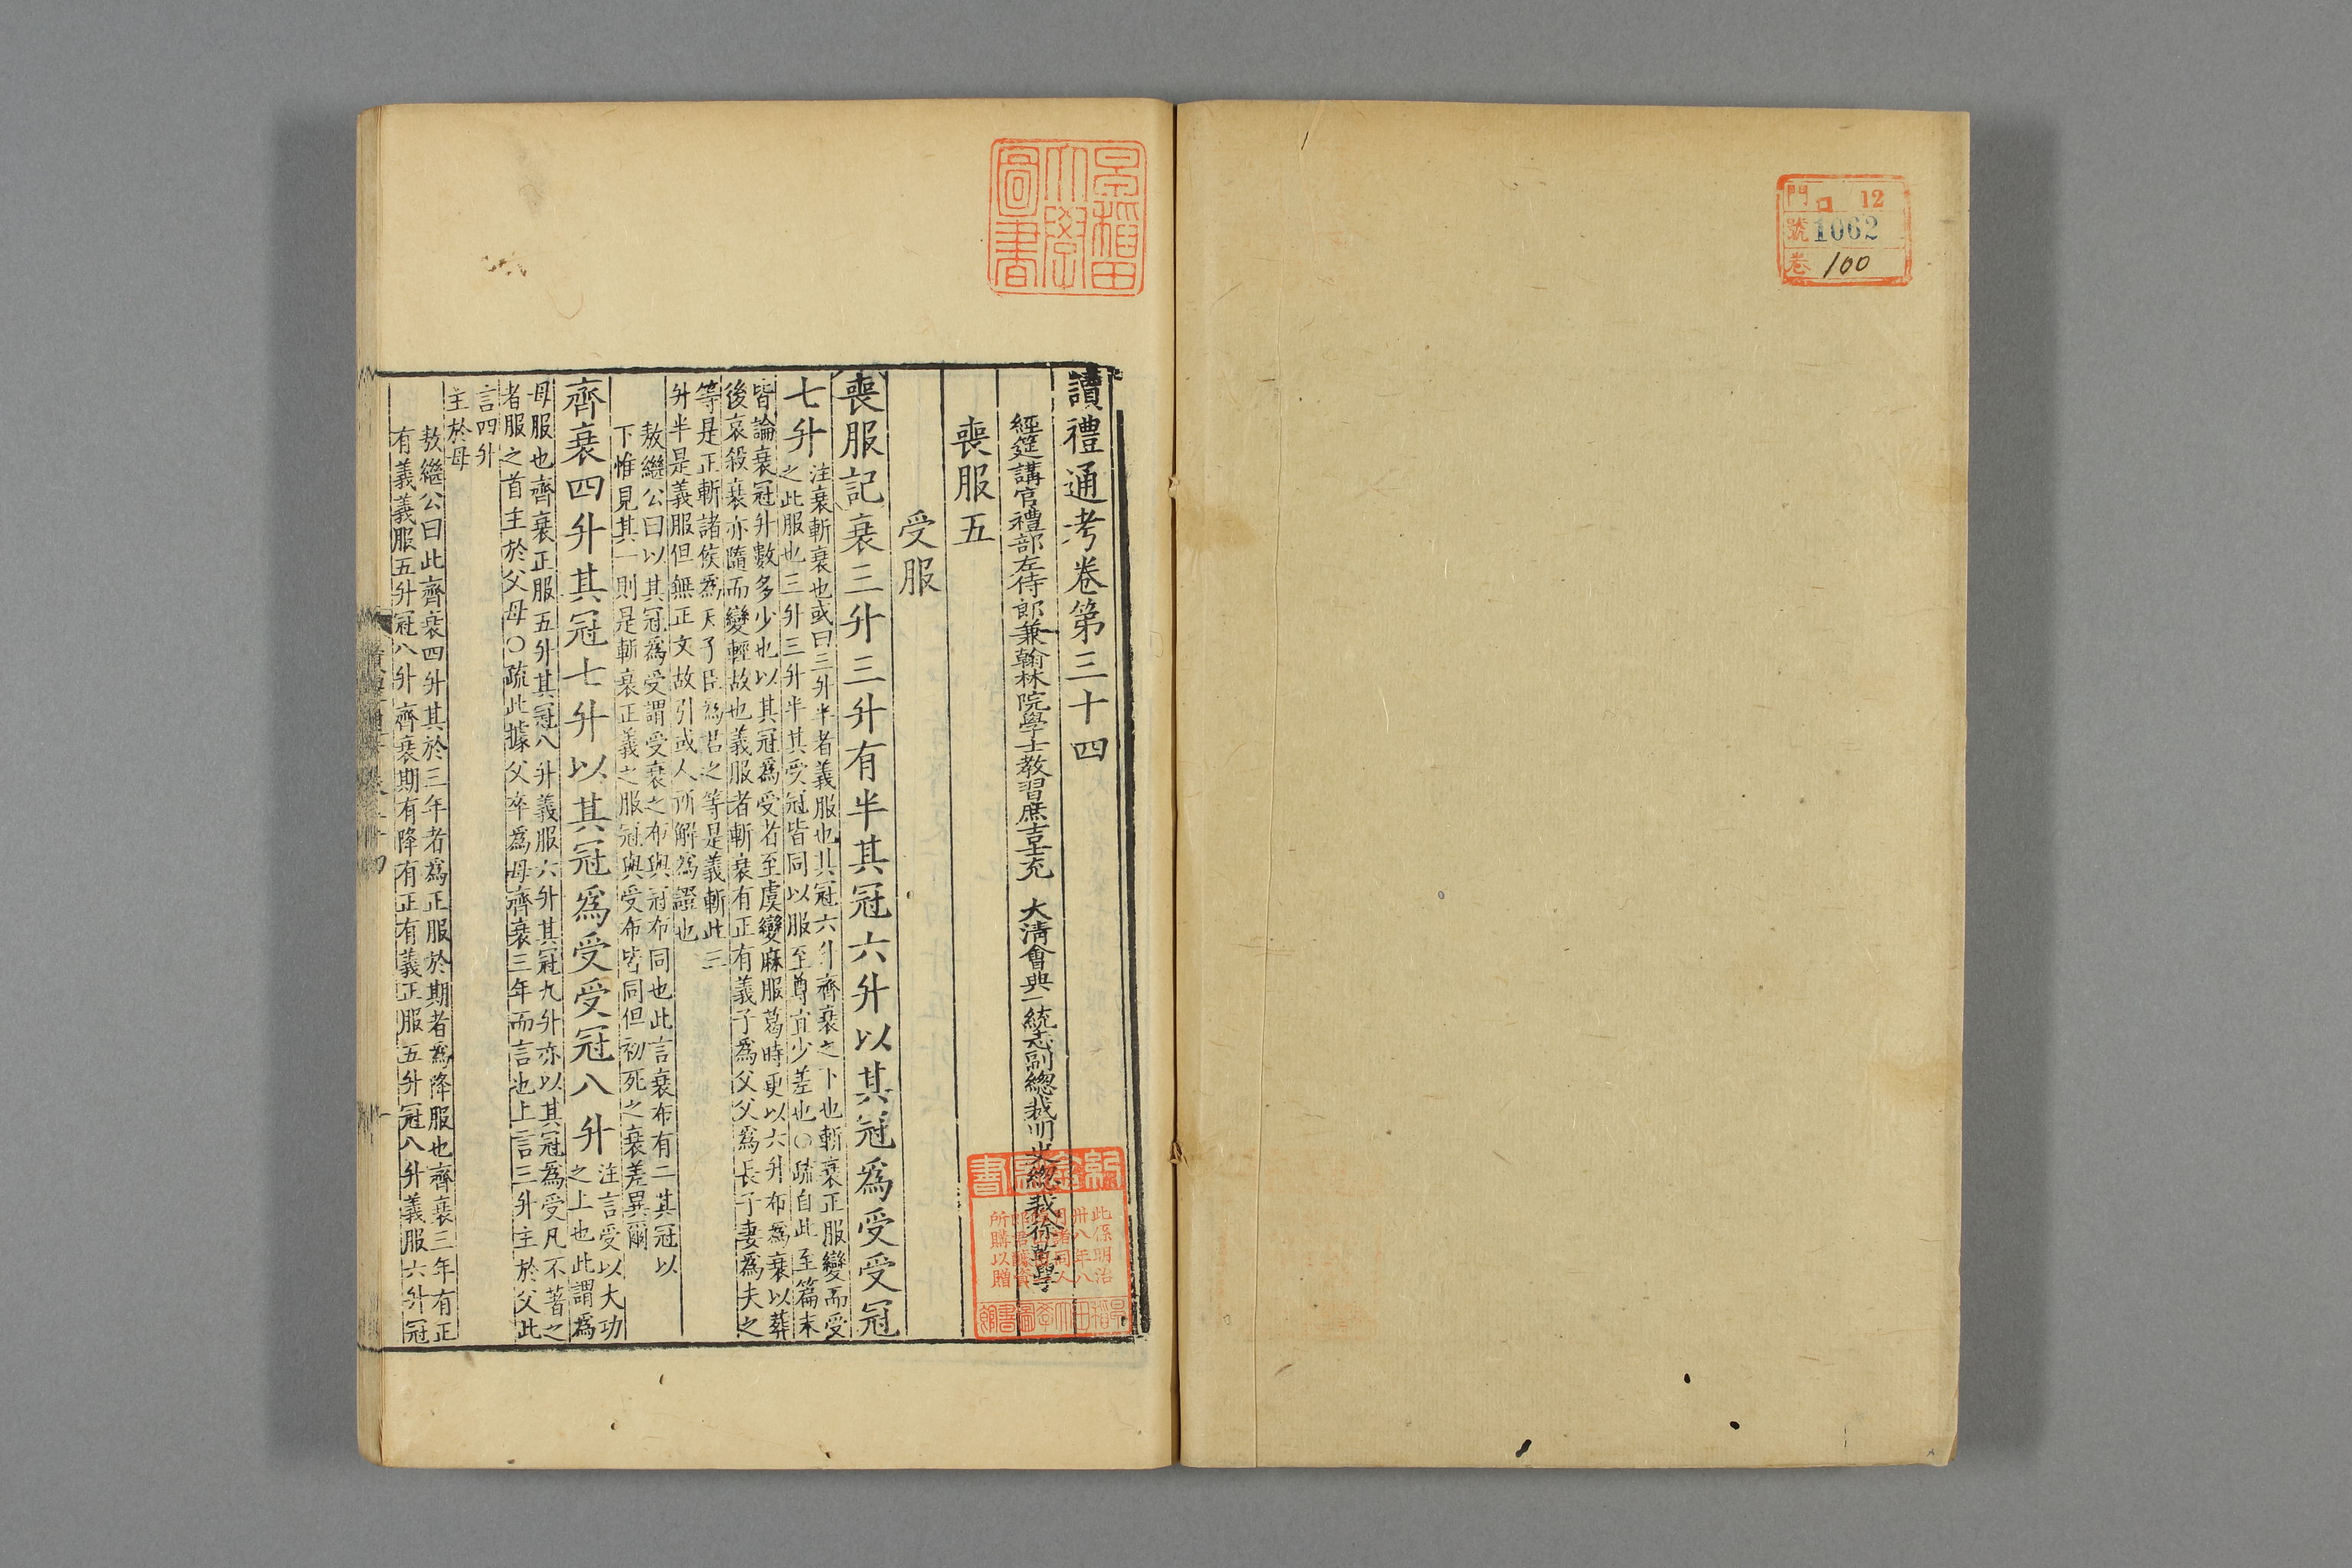 門 口 12
號 1062
卷 100
早稻田大學圖書
讀禮通考卷第三十四
經筵講官禮部左侍郎兼翰林院學士教習庶吉士充 大清會典一統志副總裁明史總裁徐乾學
喪服五
受服
喪服記衰三升三升有半其冠六升以其冠爲受受冠
七升
注衰斬衰也或曰三升半者義服也其冠六升齊衰之下也斬衰正服變而受
之此服也三升三升半其受冠皆同以服至尊宜少差也○疏自此至篇末
皆論衰冠升數多少也以其冠爲受者至虞變麻服葛時更以六升布爲衰以葬
後哀殺衰亦隨而變輕故也義服者斬衰有正有義子爲父父爲長子妻爲夫之
等是正斬諸侯爲天子臣爲君之等是義斬此三
升半是義服但無正文故引或人所解爲證也
敖繼公曰以其冠爲受謂受衰之布與冠布同也此言衰布有二其冠以
下惟見其一則是斬衰正義之服冠與受布皆同但初死之衰差異爾
齊衰四升其冠七升以其冠爲受受冠八升
注言受以大功
之上也此謂爲
母服也齊衰正服五升其冠八升義服六升其冠九升亦以其冠爲受凡不著之
者服之首主於父母○疏此據父卒爲母齊衰三年而言也上言三升主於父此
言四升
主於母
敖繼公曰此齊衰四升其於三年者爲正服於期者爲降服也齊衰三年有正
有義義服五升冠八升齊衰期有降有正有義正服五升冠八升義服六升冠
此係明治
卅八年八
所購以贈
早稻田大學圖書館